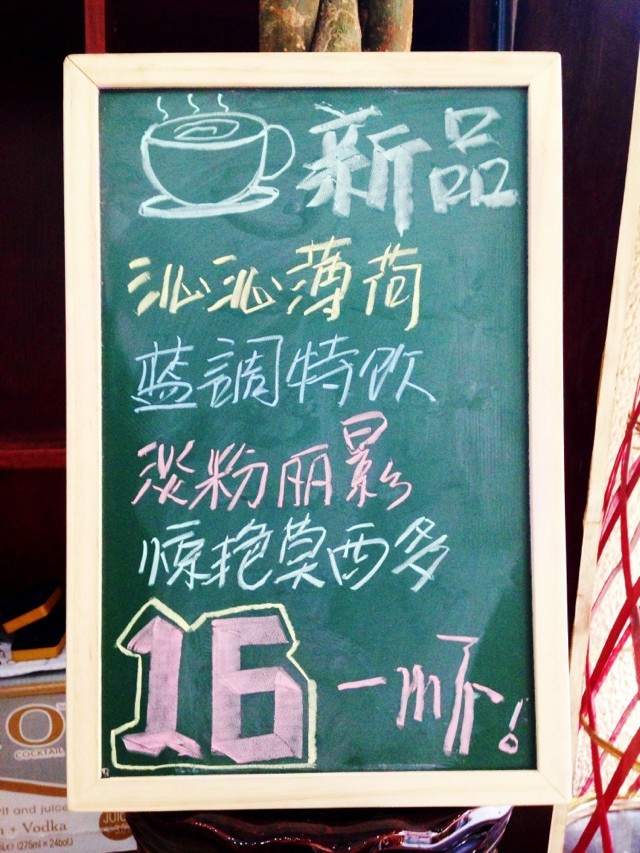 新品
沁沁薄荷
蓝調特饮
淡粉丽影
惊艳莫西多
16一
COCKTAIL
and juice
+ Vodka
(275ml x 24bot)